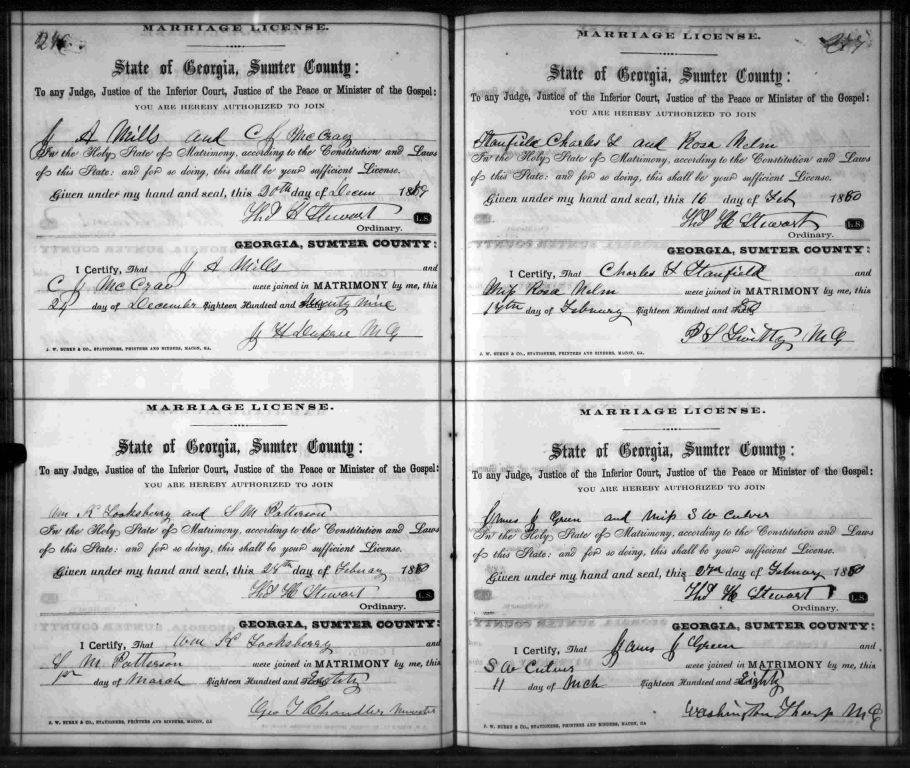 246
MARRIAGE LICENSE.
State of Georgia, Sumter County:
To any Judge, Justice of the Inferior Court, Justice of the Peace or Minister of the Gospel:
YOU ARE HEREBY AUTHORIZED TO JOIN
J A Mills and C J McCray
In the Holy State of Matrimony, according to the Constitution and Laws
of this State: and for so doing, this shall be your sufficient License.
Given under my hand and seal, this 20th day of Decem 1879
Thd H Stewart L.S.
Ordinary.
GEORGIA, SUMTER COUNTY:
I Certify, That J A Mills and
C J McCray were joined in MATRIMONY by me, this
24 day of December Eighteen Hundred and Seventy nine
J H M G
J. W. BURKE & CO., STATIONERS, PRINTERS AND BINDERS, MACON, GA.
MARRIAGE LICENSE.
State of Georgia, Sumter County:
To any Judge, Justice of the Inferior Court, Justice of the Peace or Minister of the Gospel:
YOU ARE HEREBY AUTHORIZED TO JOIN
Wm R Cooksberry and S M Patterson
In the Holy State of Matrimony, according to the Constitution and Laws
of this State: and for so doing, this shall be your sufficient License.
Given under my hand and seal, this 28th day of February 1880
Thd H Stewart L.S.
Ordinary.
GEORGIA, SUMTER COUNTY:
I Certify, That Wm R Cooksberry and
S M Patterson were joined in MATRIMONY by me, this
day of March Eighteen Hundred and Eighty
Geo T Chandler Minister
J. W. BURKE & CO., STATIONERS, PRINTERS AND BINDERS, MACON, GA
247
MARRIAGE LICENSE.
State of Georgia, Sumter County:
To any Judge, Justice of the Inferior Court, Justice of the Peace or Minister of the Gospel:
YOU ARE HEREBY AUTHORIZED TO JOIN
Stanfield Charles L and Rosa Nelm
In the Holy State of Matrimony, according to the Constitution and Laws
of this State: and for so doing, this shall be your sufficient License.
Given under my hand and seal, this 16 day of Feb 1880
Thd H Stewart L.S.
Ordinary.
GEORGIA, SUMTER COUNTY:
I Certify, That Charles L Stanfield and
Miss Rosa Nelm were joined in MATRIMONY by me, this
17th day of February Eighteen Hundred and 80
P S Twitty M G
J. W. BURKE & CO., STATIONERS, PRINTERS AND BINDERS, MACON, GA.
MARRIAGE LICENSE.
State of Georgia, Sumter County:
To any Judge, Justice of the Inferior Court, Justice of the Peace or Minister of the Gospel:
YOU ARE HEREBY AUTHORIZED TO JOIN
James J Green and miss S W Culver
In the Holy State of Matrimony, according to the Constitution and Laws
of this State: and for so doing, this shall be your sufficient License.
Given under my hand and seal, this day of February 1880
Thd H Stewart L.S.
Ordinary.
GEORGIA, SUMTER COUNTY:
I Certify, That James J Green and
S W Culver were joined in MATRIMONY by me, this
11 day of Mch Eighteen Hundred and Eighty
Washington Tharp M G
J. W. BURKE & CO., STATIONERS, PRINTERS AND BINDERS, MACON, GA.